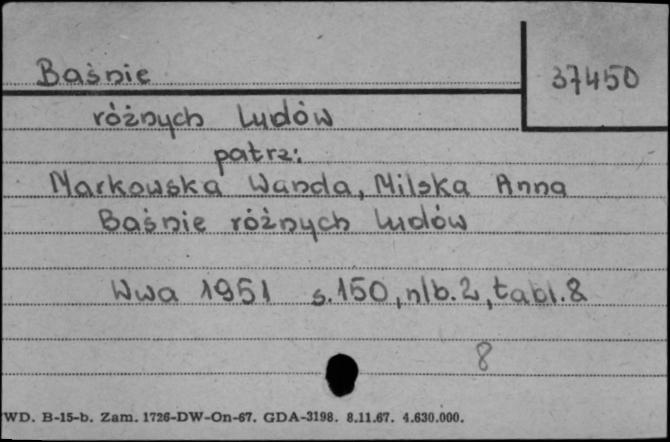 Baśnie
37450
różnych ludów
patrz:
Markowska Wanda, Milska Anna
Baśnie różnych ludów
Wwa 1951 s.150, nlb.2, tabl.8
8
WD. B-15-b. Zam. 1726-DW-On-67. GDA-3198. 8.11.67. 4.630.000.